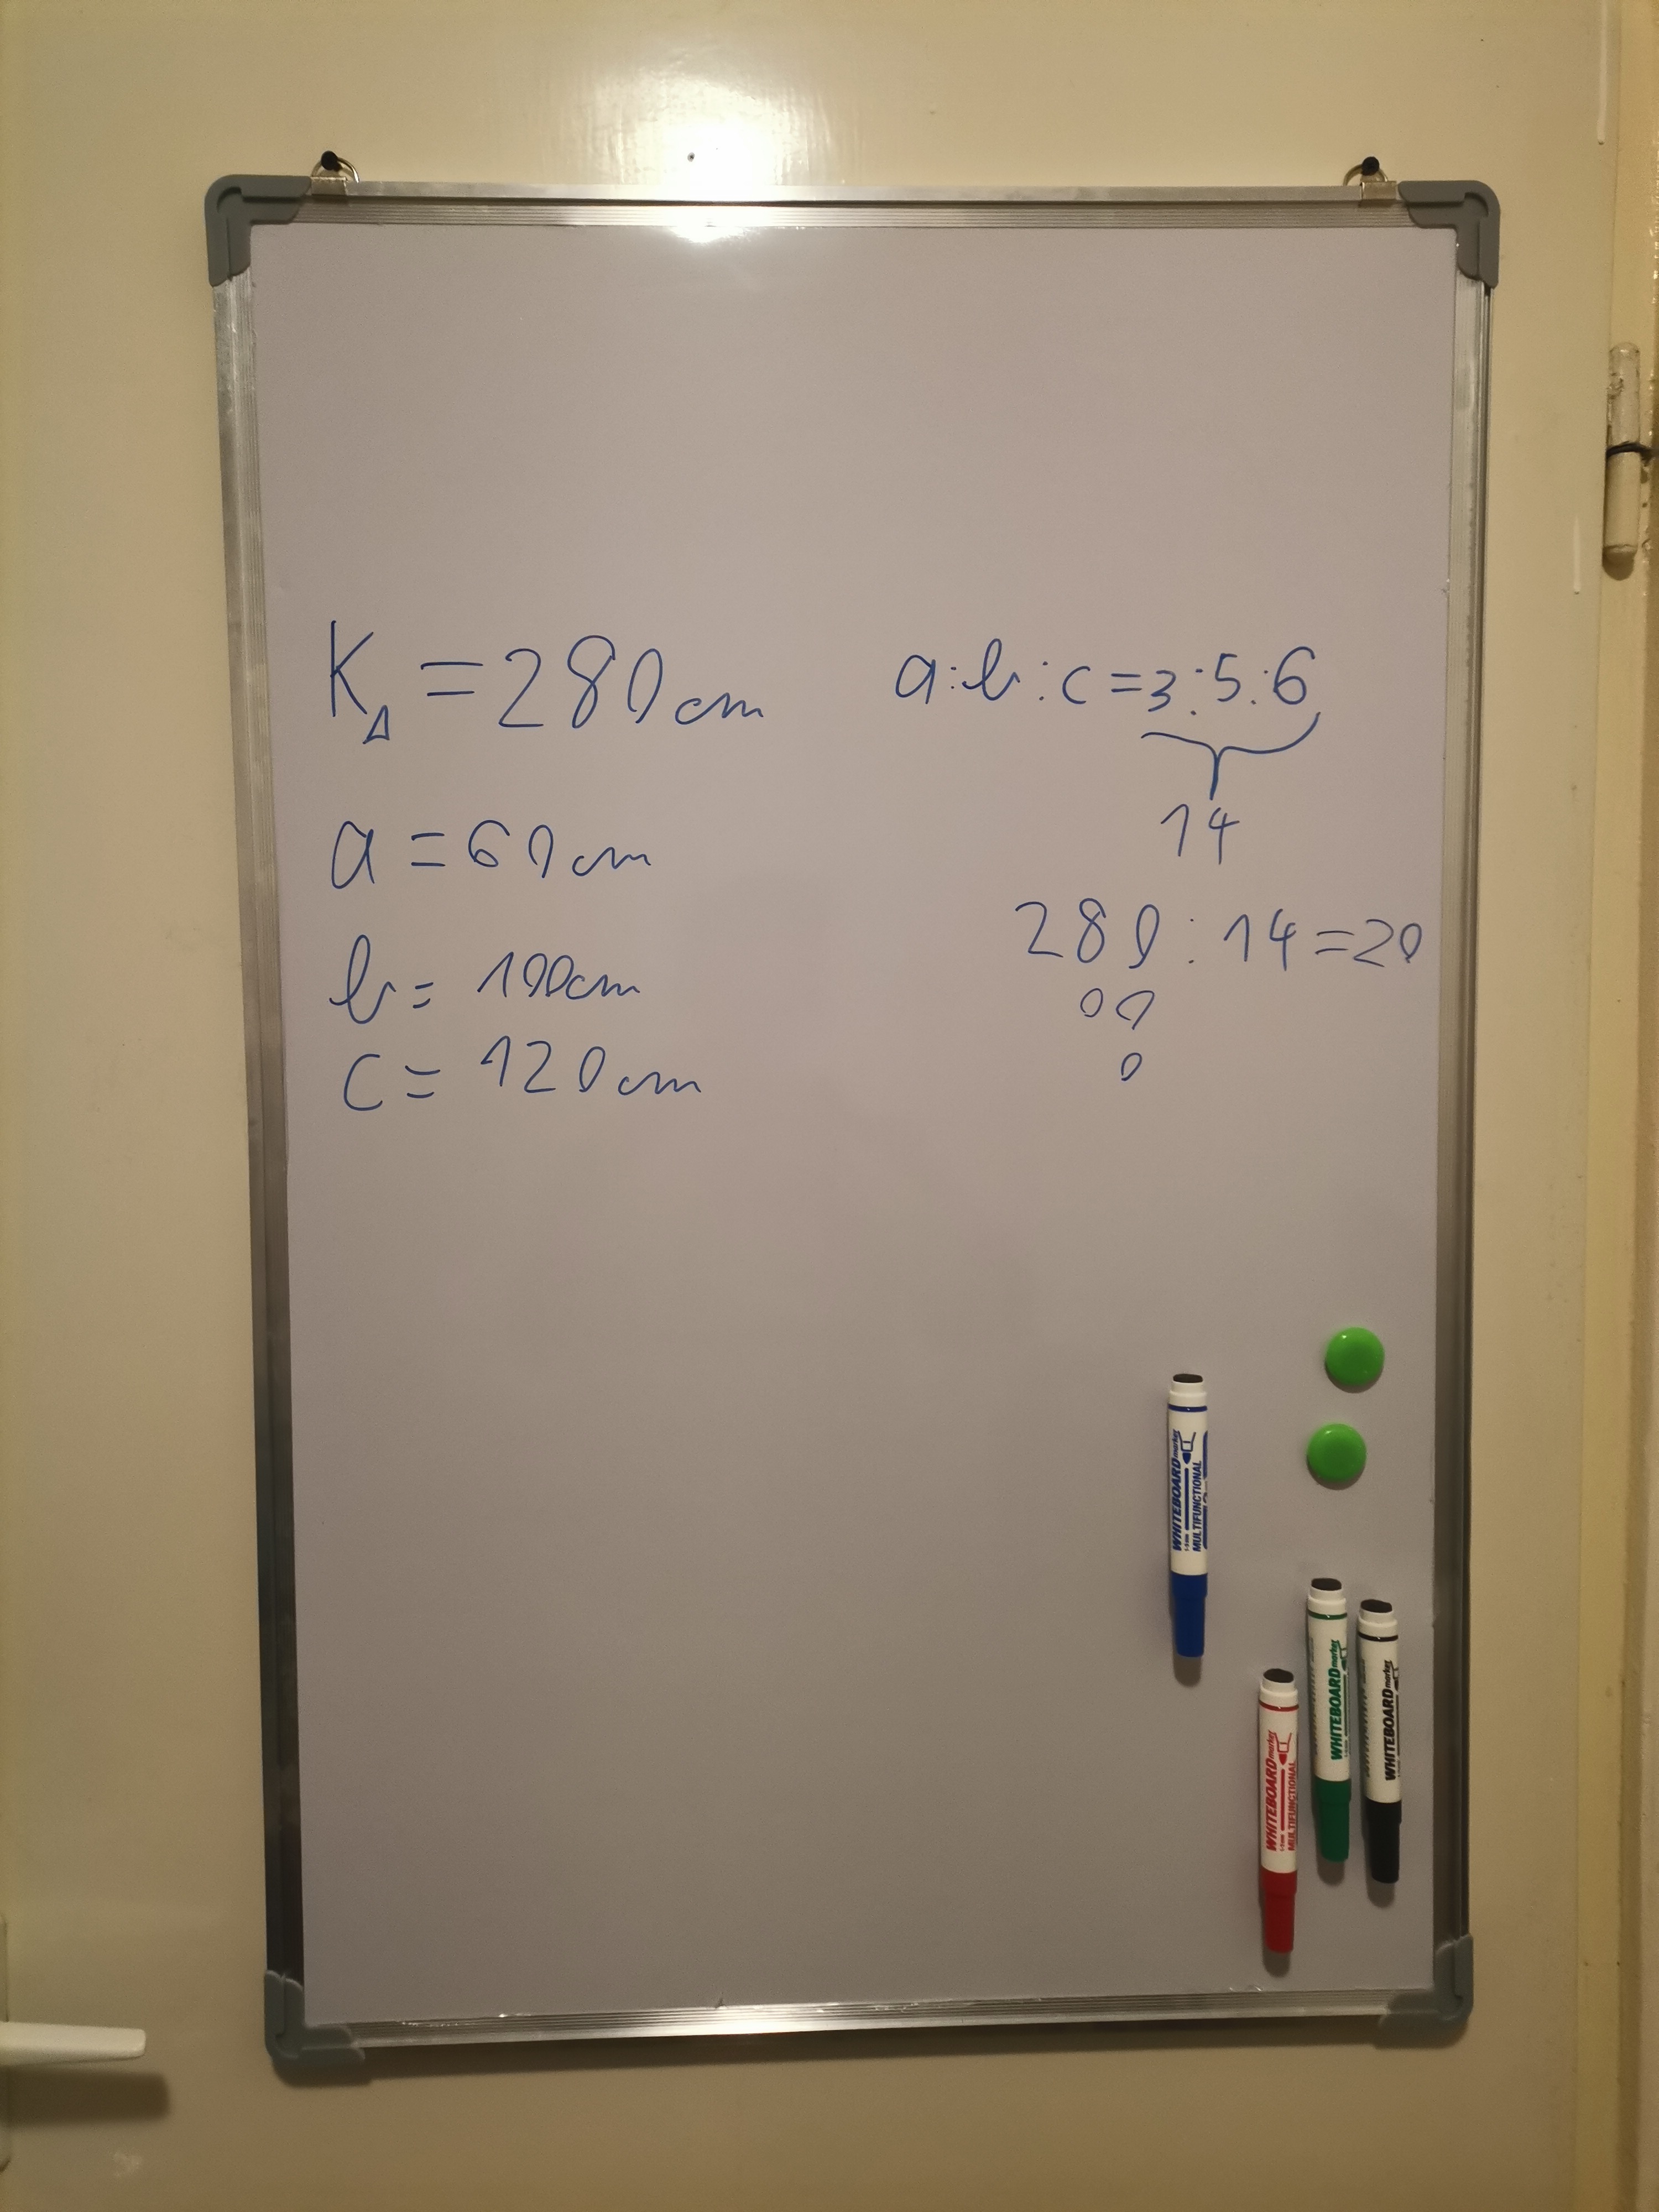 K△ = 280 cm
a:b:c = 3:5:6
14
a = 60 cm
280:14=20
b = 100cm
00
c = 120 cm
0
WHITEBOARD marker
MULTIFUNCTIONAL
WHITEBOARD marker
WHITEBOARD marker
WHITEBOARD marker
MULTIFUNCTIONAL